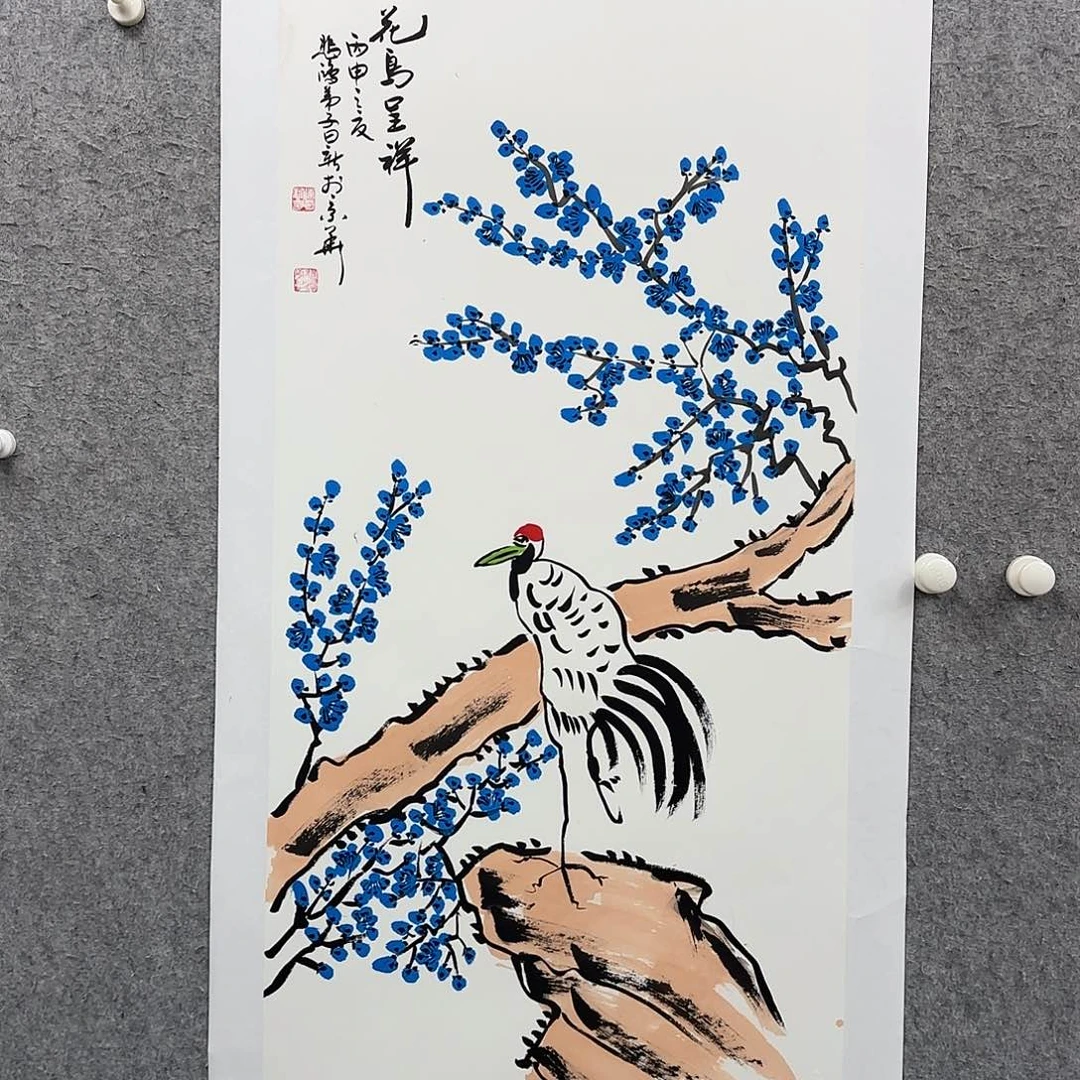 花鳥呈祥
丙申之夏
悲鴻弟子日新於京華